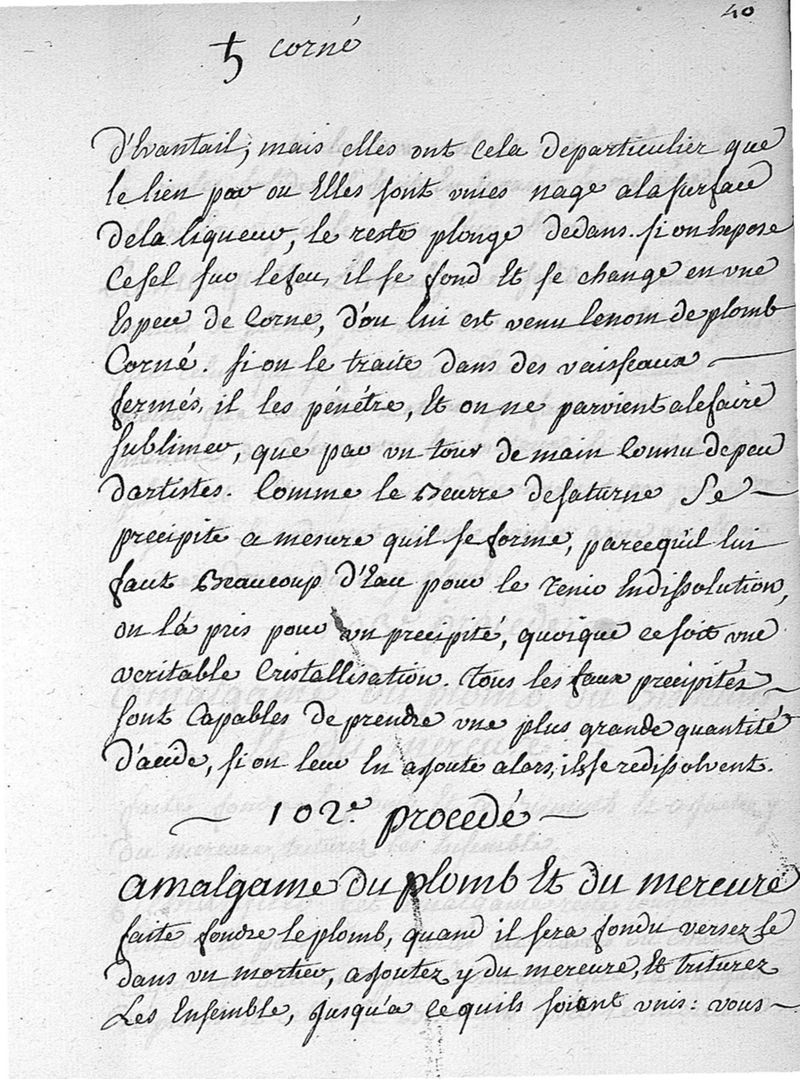 40
♄ corné
d'Evantail; mais elles ont cela departiculier que
le lien par ou Elles sont unies nage alasurface
dela liqueur, le reste plonge dedans. si on Expose
cesel sur lefeu, il se fond Et se change en une
Espece de Corne, d'ou lui est venu lenom de plomb
Corné. si on le traite dans des vaisseaux
fermés, il les pénétre, Et on ne parvient alefaire
sublimer, que par un tour de main Connu depeu
dartistes. Comme le Beurre desaturne se
precipite a mesure quil se forme, parcequ'il lui
faut Beaucoup d'Eau pour le tenir Endissolution,
on l'a pris pour un precipité, quoique ce soit une
veritable Cristallisation. tous les faux precipités
sont Capables de prendre une plus grande quantité
d'acide, si on leur En ajoute alors, ils se redissolvent.
102.e procedé
amalgame du plomb Et du mercure
faite fondre le plomb, quand il sera fondu versez le
dans un mortier, ajoutez y du mercure, Et triturez
Les Ensemble, jusqu'a ce quils soient unis: vous